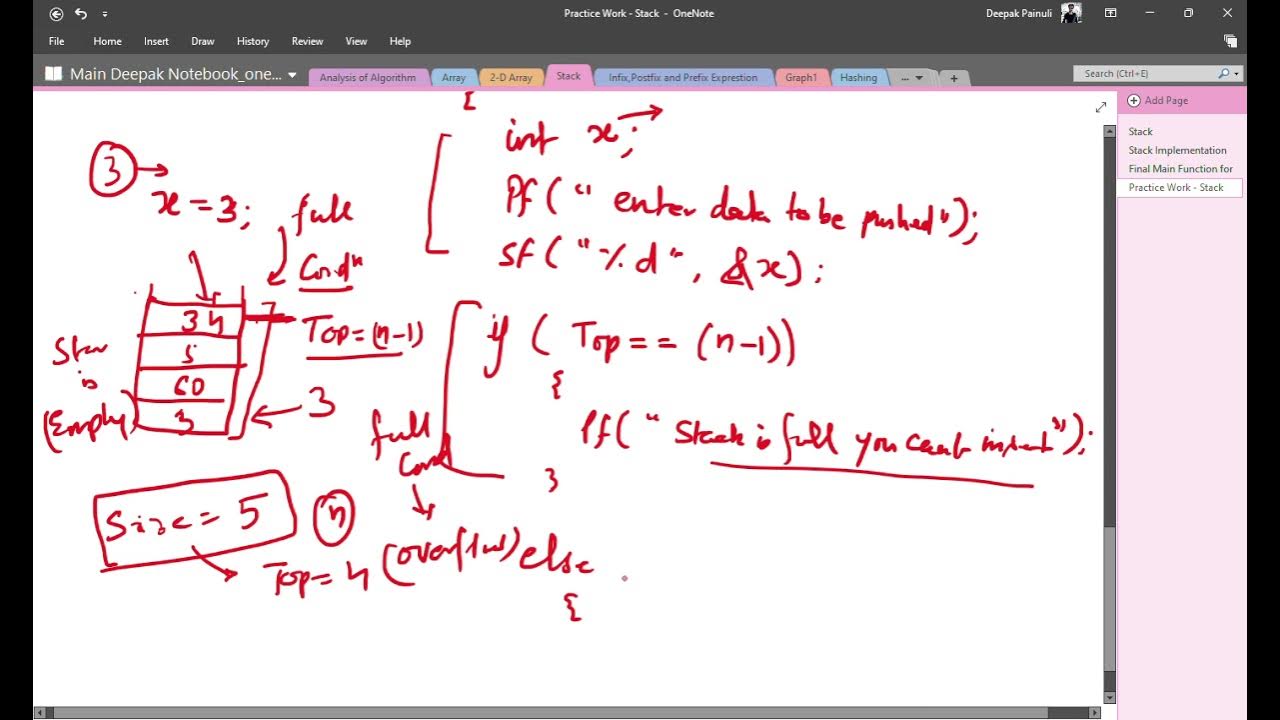 Practice Work - Stack - OneNote
Deepak Painuli
File Home Insert Draw History Review View Help
Main Deepak Notebook_one...
Analysis of Algorithm
Array
2-D Array
Stack
Infix,Postfix and Prefix Exprestion
Graph1
Hashing
...
+
Search (Ctrl+E)
Add Page
Stack
Stack Implementation
Final Main Function for
Practice Work - Stack
{
int x;
Pf(" enter data to be pushed");
sf("%d", &x);
if ( Top == (n-1))
{
Pf(" Stack is full you can't insert");
}
else
{
3
x = 3;
full
Condn
Top=(n-1)
3 4
5
60
3
is
(Empty)
3
full
Cond
(overflow)
Size = 5
n
Top= 4